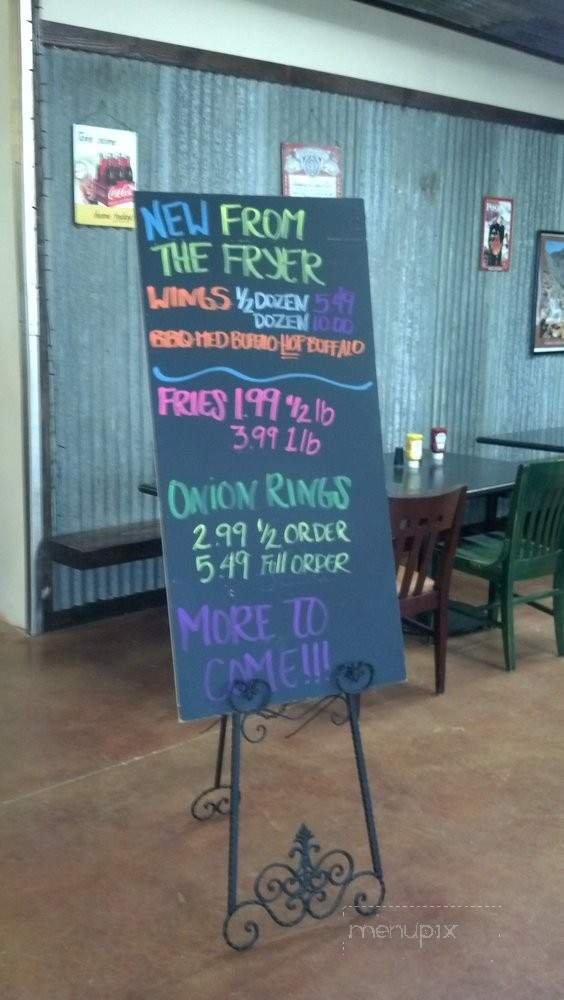 NEW FROM
THE FRYER
WINGS 1/2 DOZEN 5.49
DOZEN 10.00
BBQ-MED BUFFALO HOT BUFFALO
FRIES 1.99 1/2 lb
3.99 1 lb
ONION RINGS
2.99 1/2 ORDER
5.49 Full ORDER
MORE TO
COME!!!
Take some
Coca-Cola
home today!
menupix